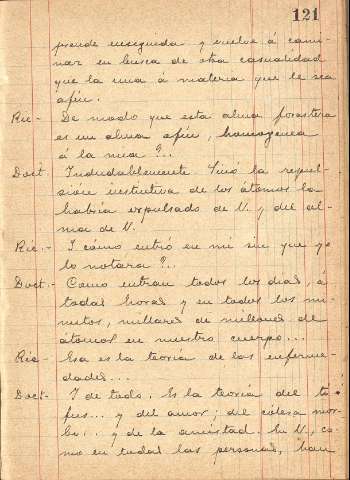 121
prende enseguida y vuelve á cami-
nar en busca de otra casualidad
que la una á materia que le sea
afin.
Ric.- De modo que esta alma forastera
es un alma afin, homogenea
á la mia?...
Doct. Indudablemente. Sinó la repul-
sión instintiva de los átomos la
habria expulsado de V. y del al-
ma de V.
Ric.- I cómo entró en mi sin que yo
lo notara?...
Doct.- Como entran todos los dias, á
todas horas y en todos los mi-
nutos, millares de millones de
átomos en nuestro cuerpo...
Ric- Esa es la teoria de las enferme-
dades...
Doct- I de todo. Es la teoria del ti-
fus... y del amor; del cólera mor-
bo... y de la amistad. En V., co-
mo en todas las personas, han